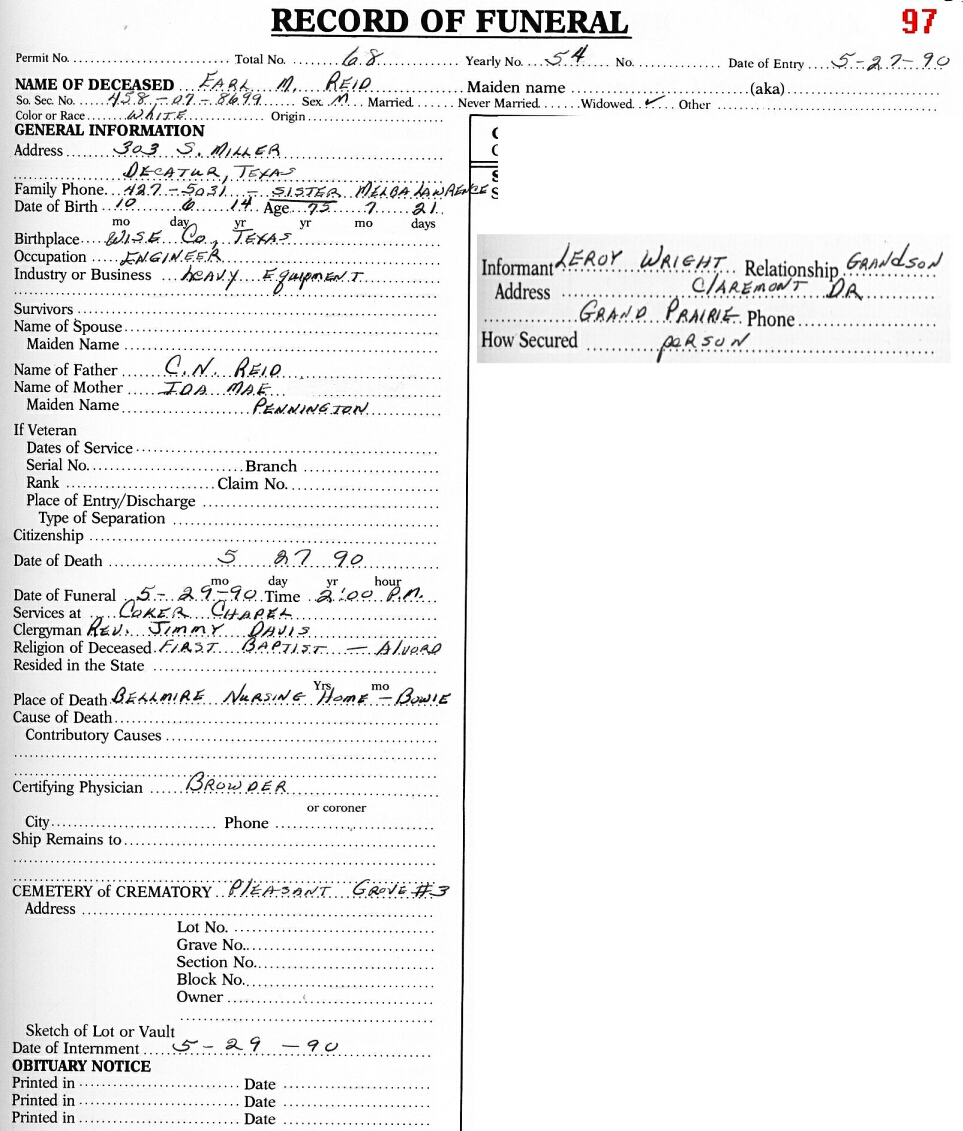 RECORD OF FUNERAL 97
Permit No. Total No. 68 Yearly No. 54 No. Date of Entry 5-27-90
NAME OF DECEASED EARL M. REID Maiden name (aka)
So. Sec. No. 458-07-8699 Sex M Married Never Married Widowed ✓ Other
Color or Race WHITE Origin
GENERAL INFORMATION
Address 303 S. MILLER
DECATUR, TEXAS
Family Phone 427-5031 - SISTER MELBA LAWRENCE
Date of Birth 10 6 14 Age 75 7 21
mo day yr yr mo days
Birthplace WISE Co., TEXAS
Occupation ENGINEER
Industry or Business HEAVY EQUIPMENT
Survivors
Name of Spouse
Maiden Name
Name of Father C.N. REID
Name of Mother IDA MAE
Maiden Name PENNINGTON
If Veteran
Dates of Service
Serial No. Branch
Rank Claim No.
Place of Entry/Discharge
Type of Separation
Citizenship
Date of Death 5 27 90
mo day yr hour
Date of Funeral 5-29-90 Time 2:00 P.M.
Services at COKER CHAPEL
Clergyman REV. JIMMY DAVIS
Religion of Deceased FIRST BAPTIST - ALVORD
Resided in the State
Yrs mo
Place of Death BELLMIRE NURSING HOME - BOWIE
Cause of Death
Contributory Causes
Certifying Physician BROWDER
or coroner
City Phone
Ship Remains to
CEMETERY of CREMATORY PLEASANT GROVE #3
Address
Lot No.
Grave No.
Section No.
Block No.
Owner
Sketch of Lot or Vault
Date of Internment 5-29-90
OBITUARY NOTICE
Printed in Date
Printed in Date
Printed in Date
Informant LEROY WRIGHT Relationship GRANDSON
Address CLAREMONT DR
GRAND PRAIRIE Phone
How Secured PERSON